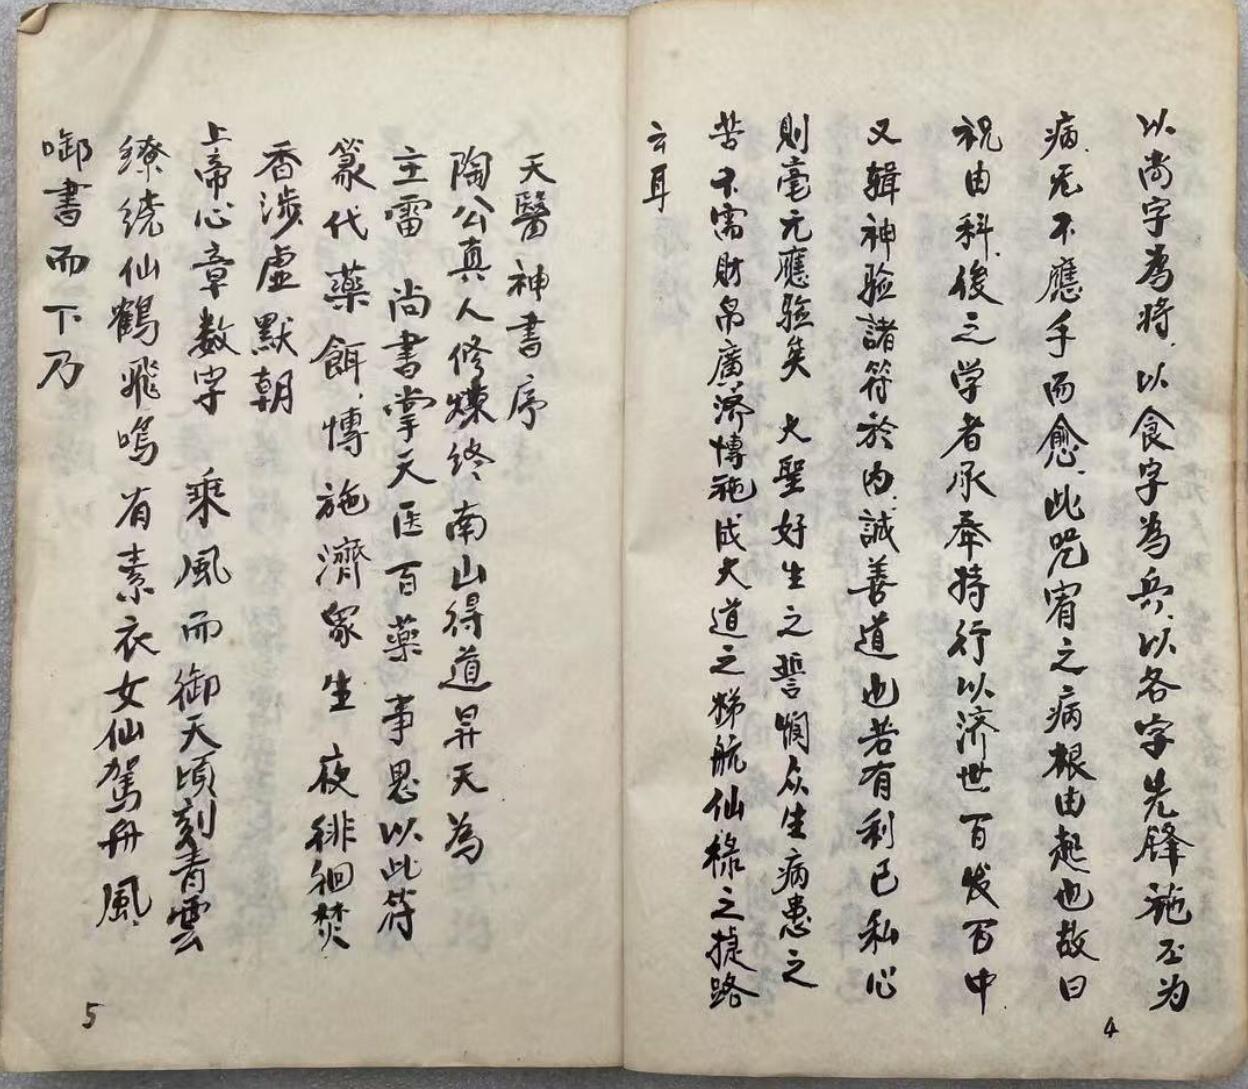 以尚字為将以食字為兵以各字先鋒施至为
病无不應手而愈此咒宥之病根由起也故曰
祝由科後之学者承奉持行以济世百发百中
又輯神验諸符於内誠善道也若有利己私心
則毫无應验矣大聖好生之誓憫众生病患之
苦不需財帛廣济愽施成大道之梯航仙祿之捷路
云耳
4
天醫神書序
陶公真人修煉终南山得道昇天為
主雷尚書掌天医百藥事恩以此符
篆代藥餌愽施濟象生夜徘徊焚
香涉虚默朝
上帝心章数字乘風而御天頃刻青雲
繚绕仙鶴飛鳴有素衣女仙駕舟風
啣書而下乃
5